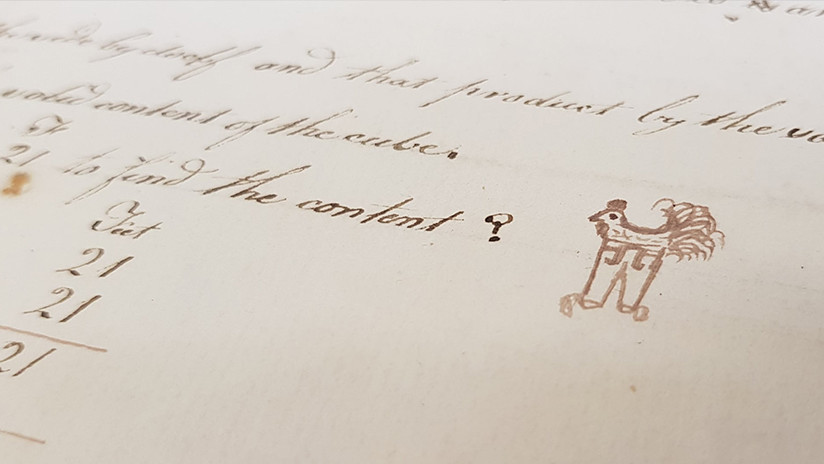 and that product by the
solid content of the cube.
Ft
21 to find the content ?
Feet
21
21
21